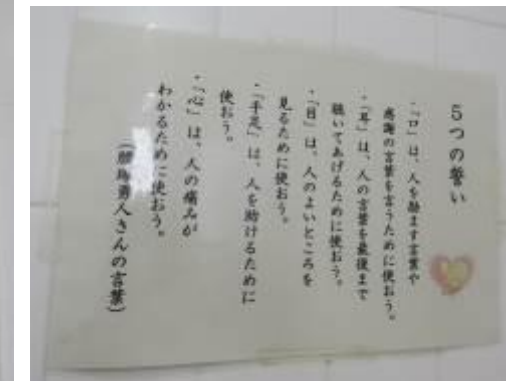 5つの誓い
・「口」は、人を励ます言葉や
感謝の言葉を言うために使おう。
・「耳」は、人の言葉を最後まで
聴いてあげるために使おう。
・「目」は、人のよいところを
見るために使おう。
・「手足」は、人を助けるために
使おう。
・「心」は、人の痛みが
わかるために使おう。
(腰塚勇人さんの言葉)